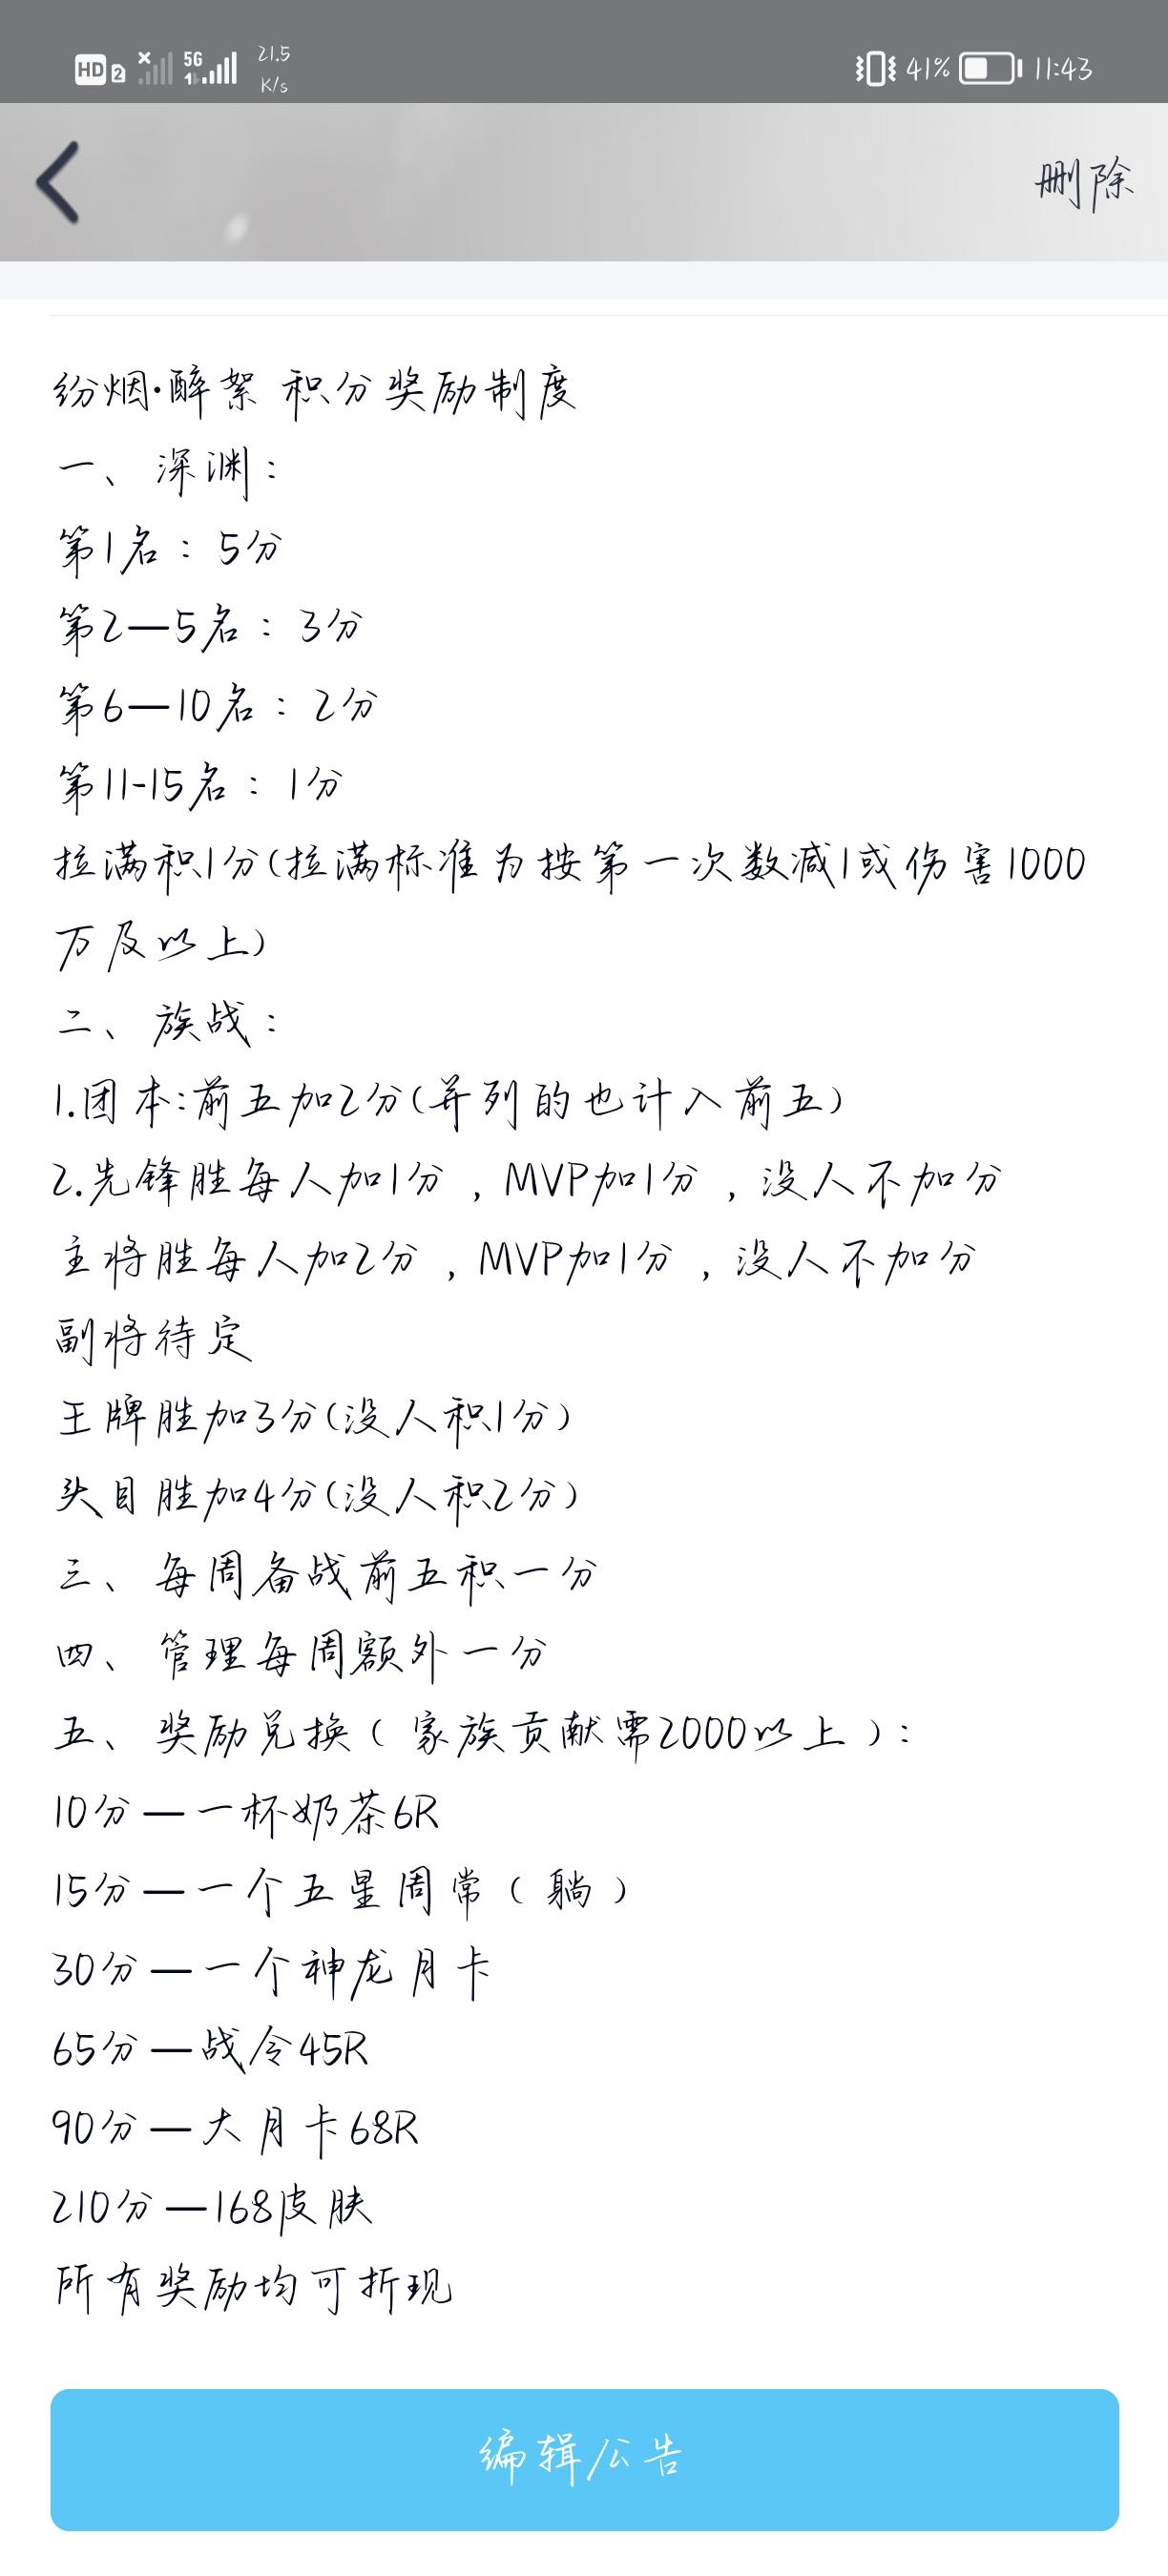 HD 2 5G 1 21.5 K/s 41% 11:43
删除
纷烟·醉絮 积分奖励制度
一、深渊：
第1名：5分
第2—5名：3分
第6—10名：2分
第11-15名：1分
拉满积1分(拉满标准为按第一次数减1或伤害1000
万及以上)
二、族战：
1.团本:前五加2分(并列的也计入前五)
2.先锋胜每人加1分，MVP加1分，没人不加分
主将胜每人加2分，MVP加1分，没人不加分
副将待定
王牌胜加3分(没人积1分)
头目胜加4分(没人积2分)
三、每周备战前五积一分
四、管理每周额外一分
五、奖励兑换（家族贡献需2000以上）：
10分—一杯奶茶6R
15分—一个五星周常（躺）
30分—一个神龙月卡
65分—战令45R
90分—大月卡68R
210分—168皮肤
所有奖励均可折现
编辑公告